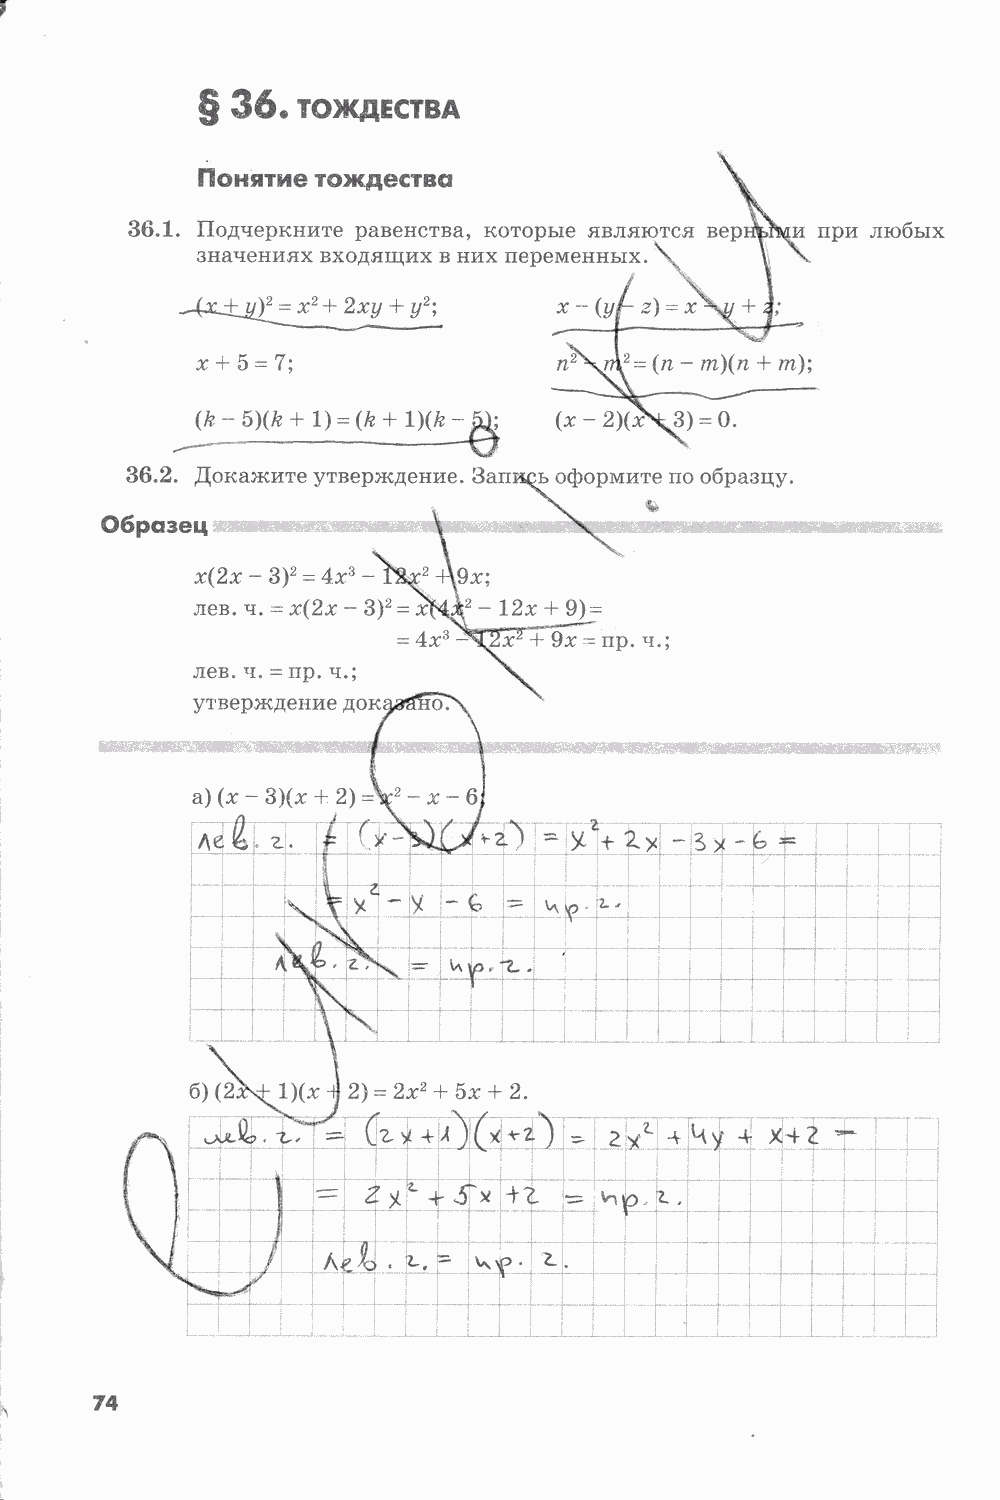 § 36. ТОЖДЕСТВА
Понятие тождества
36.1. Подчеркните равенства, которые являются верными при любых
значениях входящих в них переменных.
(x + y)² = x² + 2xy + y²; x − (y − z) = x − y + z;
x + 5 = 7; n² − m² = (n − m)(n + m);
(k − 5)(k + 1) = (k + 1)(k − 5); (x − 2)(x + 3) = 0.
36.2. Докажите утверждение. Запись оформите по образцу.
Образец
x(2x − 3)² = 4x³ − 12x² + 9x;
лев. ч. = x(2x − 3)² = x(4x² − 12x + 9) =
= 4x³ − 12x² + 9x = пр. ч.;
лев. ч. = пр. ч.;
утверждение доказано.
а) (x − 3)(x + 2) = x² − x − 6;
лев. ч. = (x−3)(x+2) = x² + 2x − 3x − 6 =
= x² − x − 6 = пр. ч.
лев. ч. = пр. ч.
б) (2x + 1)(x + 2) = 2x² + 5x + 2.
лев. ч. = (2x+1)(x+2) = 2x² + 4y + x+2 =
= 2x² + 5x + 2 = пр. ч.
лев. ч. = пр. ч.
74